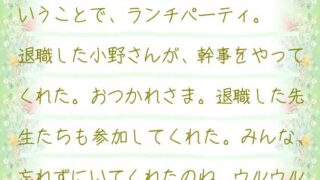 いうことで、ランチパーティ。
退職した小野さんが、幹事をやって
くれた。おつかれさま。退職した先
生たちも参加してくれた。みんな、
忘れずにいてくれたのね、ウルウル